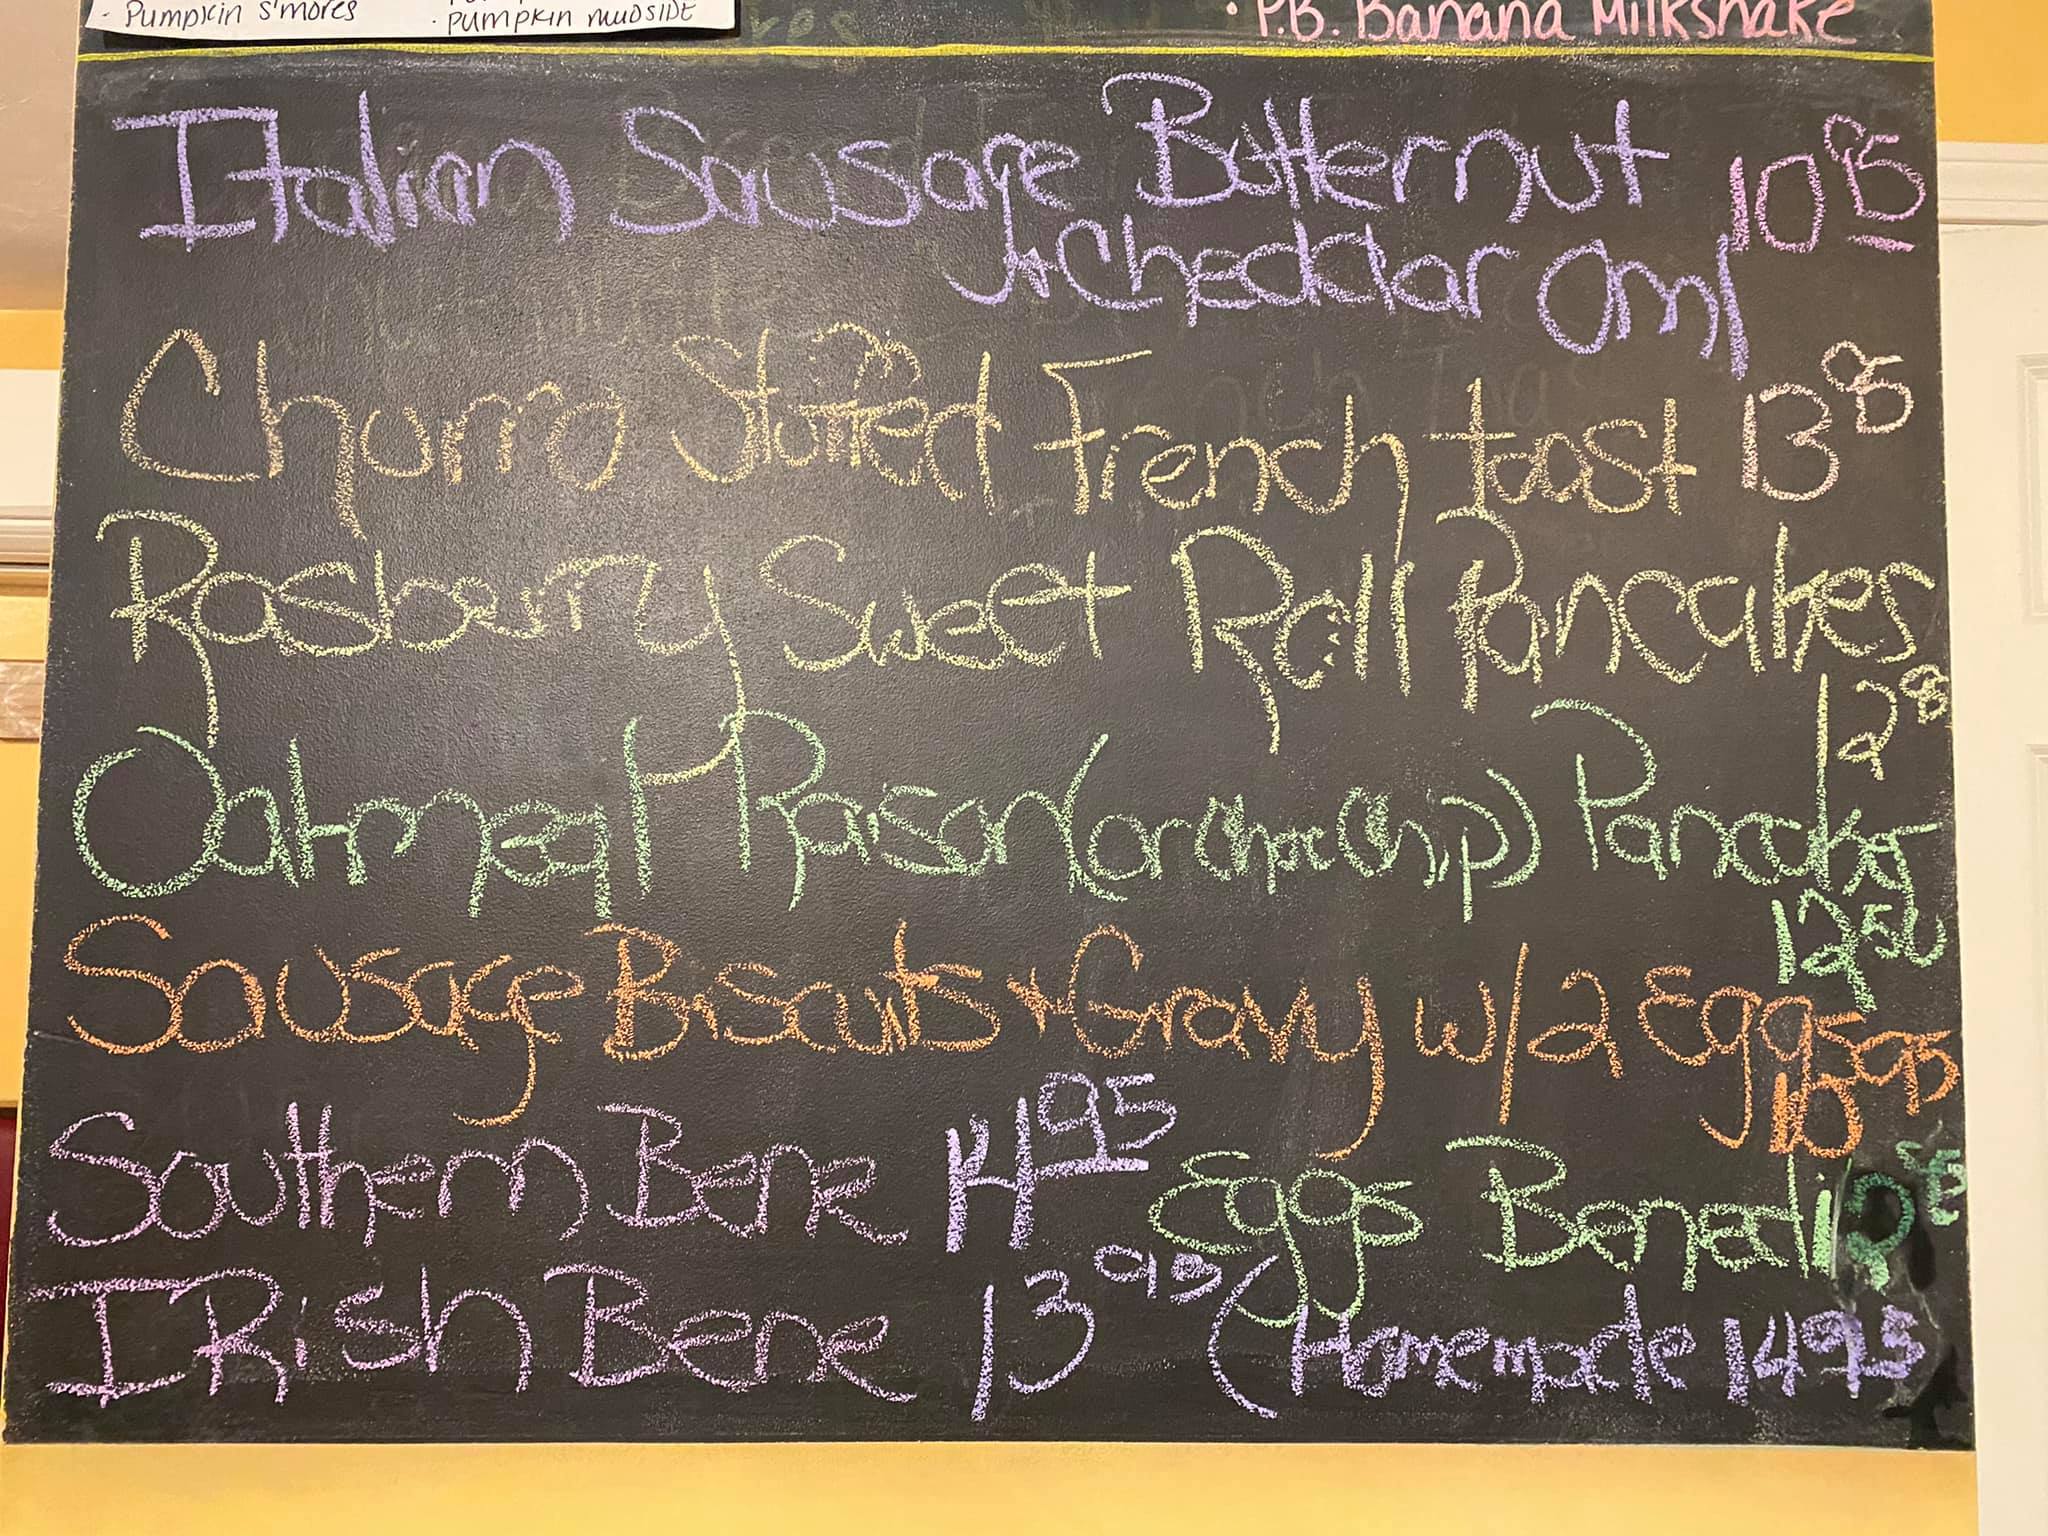 · Pumpkin s'mores
· pumpkin mudside
· P.B. Banana Milkshake
Italian Sausage Butternut 10 95
+ Cheddar Oml
Churro Stuffed French toast 13 95
Rasberry Sweet Roll Pancakes
12
Oatmeal Raison (or choc chip) Pancakes
12 50
Sausage Biscuits + Gravy w/2 Eggs
95
Southern Bene 14 95
Eggs Benedi 12
IRish Bene 13 95
(Homemade 14 95